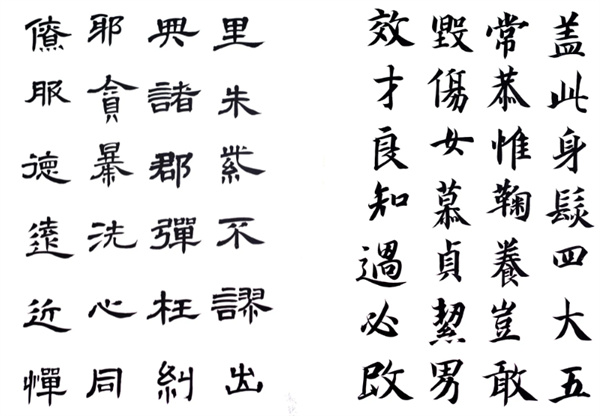 盖此身髮四大五
常恭惟鞠養豈敢
毀傷女慕貞絜男
效才良知過必改
里朱紫不謬出
典諸郡彈枉糾
邪貪暴洗心同
僚服德遠近憚